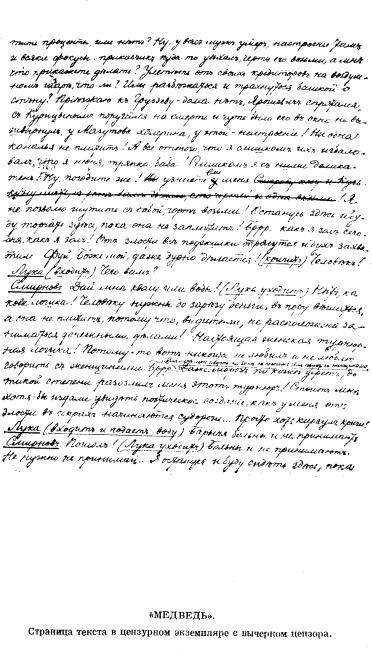 тить проценты, или нѣтъ? Ну, у васъ мужъ умеръ, настроеніе тамъ
и всякіе фокусы.. прикащикъ куда то уѣхалъ, чертъ его возьми, а мнѣ
что прикажете дѣлать? Улетѣть отъ своихъ кредиторовъ на воздуш-
номъ шарѣ, что ли? Или разбѣжаться и трахнуться башкой о
стѣну? Пріѣзжаю къ Груздеву - дома нѣтъ, Ярошевичъ спрятался,
съ Курицынымъ поругался на смерть и чуть было его въ окно не вы-
швырнулъ, у Мазутова холерина, у этой - настроеніе! Ни одна
каналья не платитъ! А все оттого, что я слишкомъ ихъ избало-
валъ, что я нюня, тряпка, баба! Слишкомъ я съ ними делика-
тенъ! Ну, погодите же! Узнаете вы у меня
Я
не позволю шутить съ собой, чортъ возьми! Останусь здѣсь и бу-
ду торчать здѣсь, пока она не заплатитъ! Бррр.. какъ я золъ сего-
дня, какъ я золъ! Отъ злости всѣ поджилки трясутся и духъ захва-
тило. Фуй, Боже мой, даже дурно дѣлается! (кричитъ) Человѣкъ!
Лука (входитъ) Чего вамъ?
Смирновъ Дай мнѣ квасу или воды! (Лука уходитъ) Нѣтъ, ка
кова логика! Человѣку нужны до зарѣзу деньги, въ пору вѣшаться,
а она не платитъ, потому что, видите ли, не расположена за-
ниматься денежными дѣлами! Настоящая женская турнюр-
ная логика! Потому-то вотъ никогда не любилъ и не люблю
говорить съ женщинами. Бррр.. Даже морозъ по кожѣ деретъ, до
такой степени разозлилъ меня этотъ турнюръ! Стоитъ мнѣ
хотя бы издали увидѣть поэтическое созданіе, какъ у меня отъ
злости въ икрахъ начинаются судороги... Просто хоть караулъ кричи!
Лука (входитъ и подаетъ воду) Барыня больны и не принимаютъ.
Смирновъ Пошолъ! (Лука уходитъ) Больны и не принимаютъ.
Не нужно не принимай.. Я останусь и буду сидѣть здѣсь, пока
«МЕДВЕДЬ».
Страница текста в цензурном экземпляре с вычерком цензора.